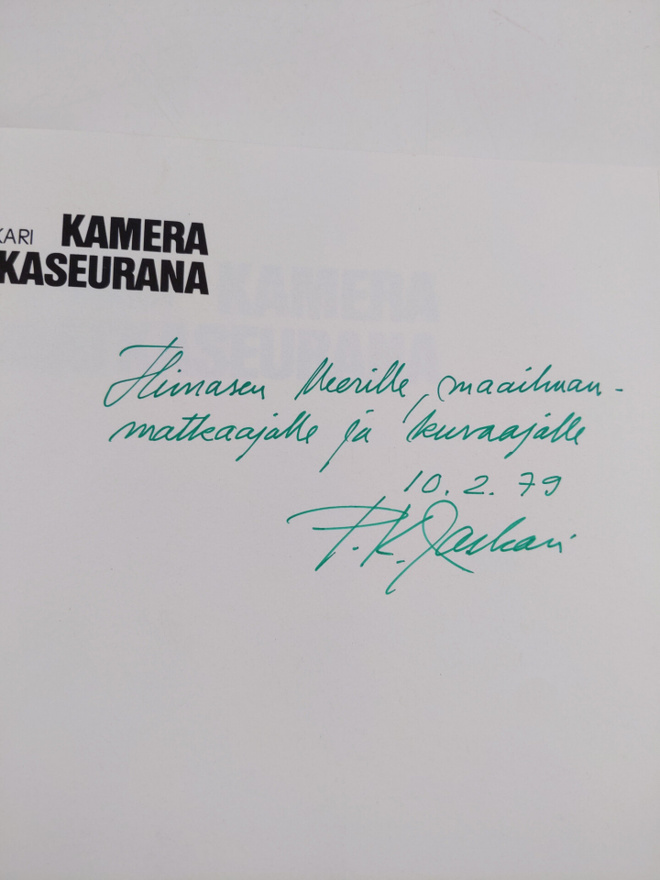 KARI KAMERA
KASEURANA
Himasen Meerille, maailman-
matkaajalle ja kuvaajalle
10.2.79
P.K. Jaskari